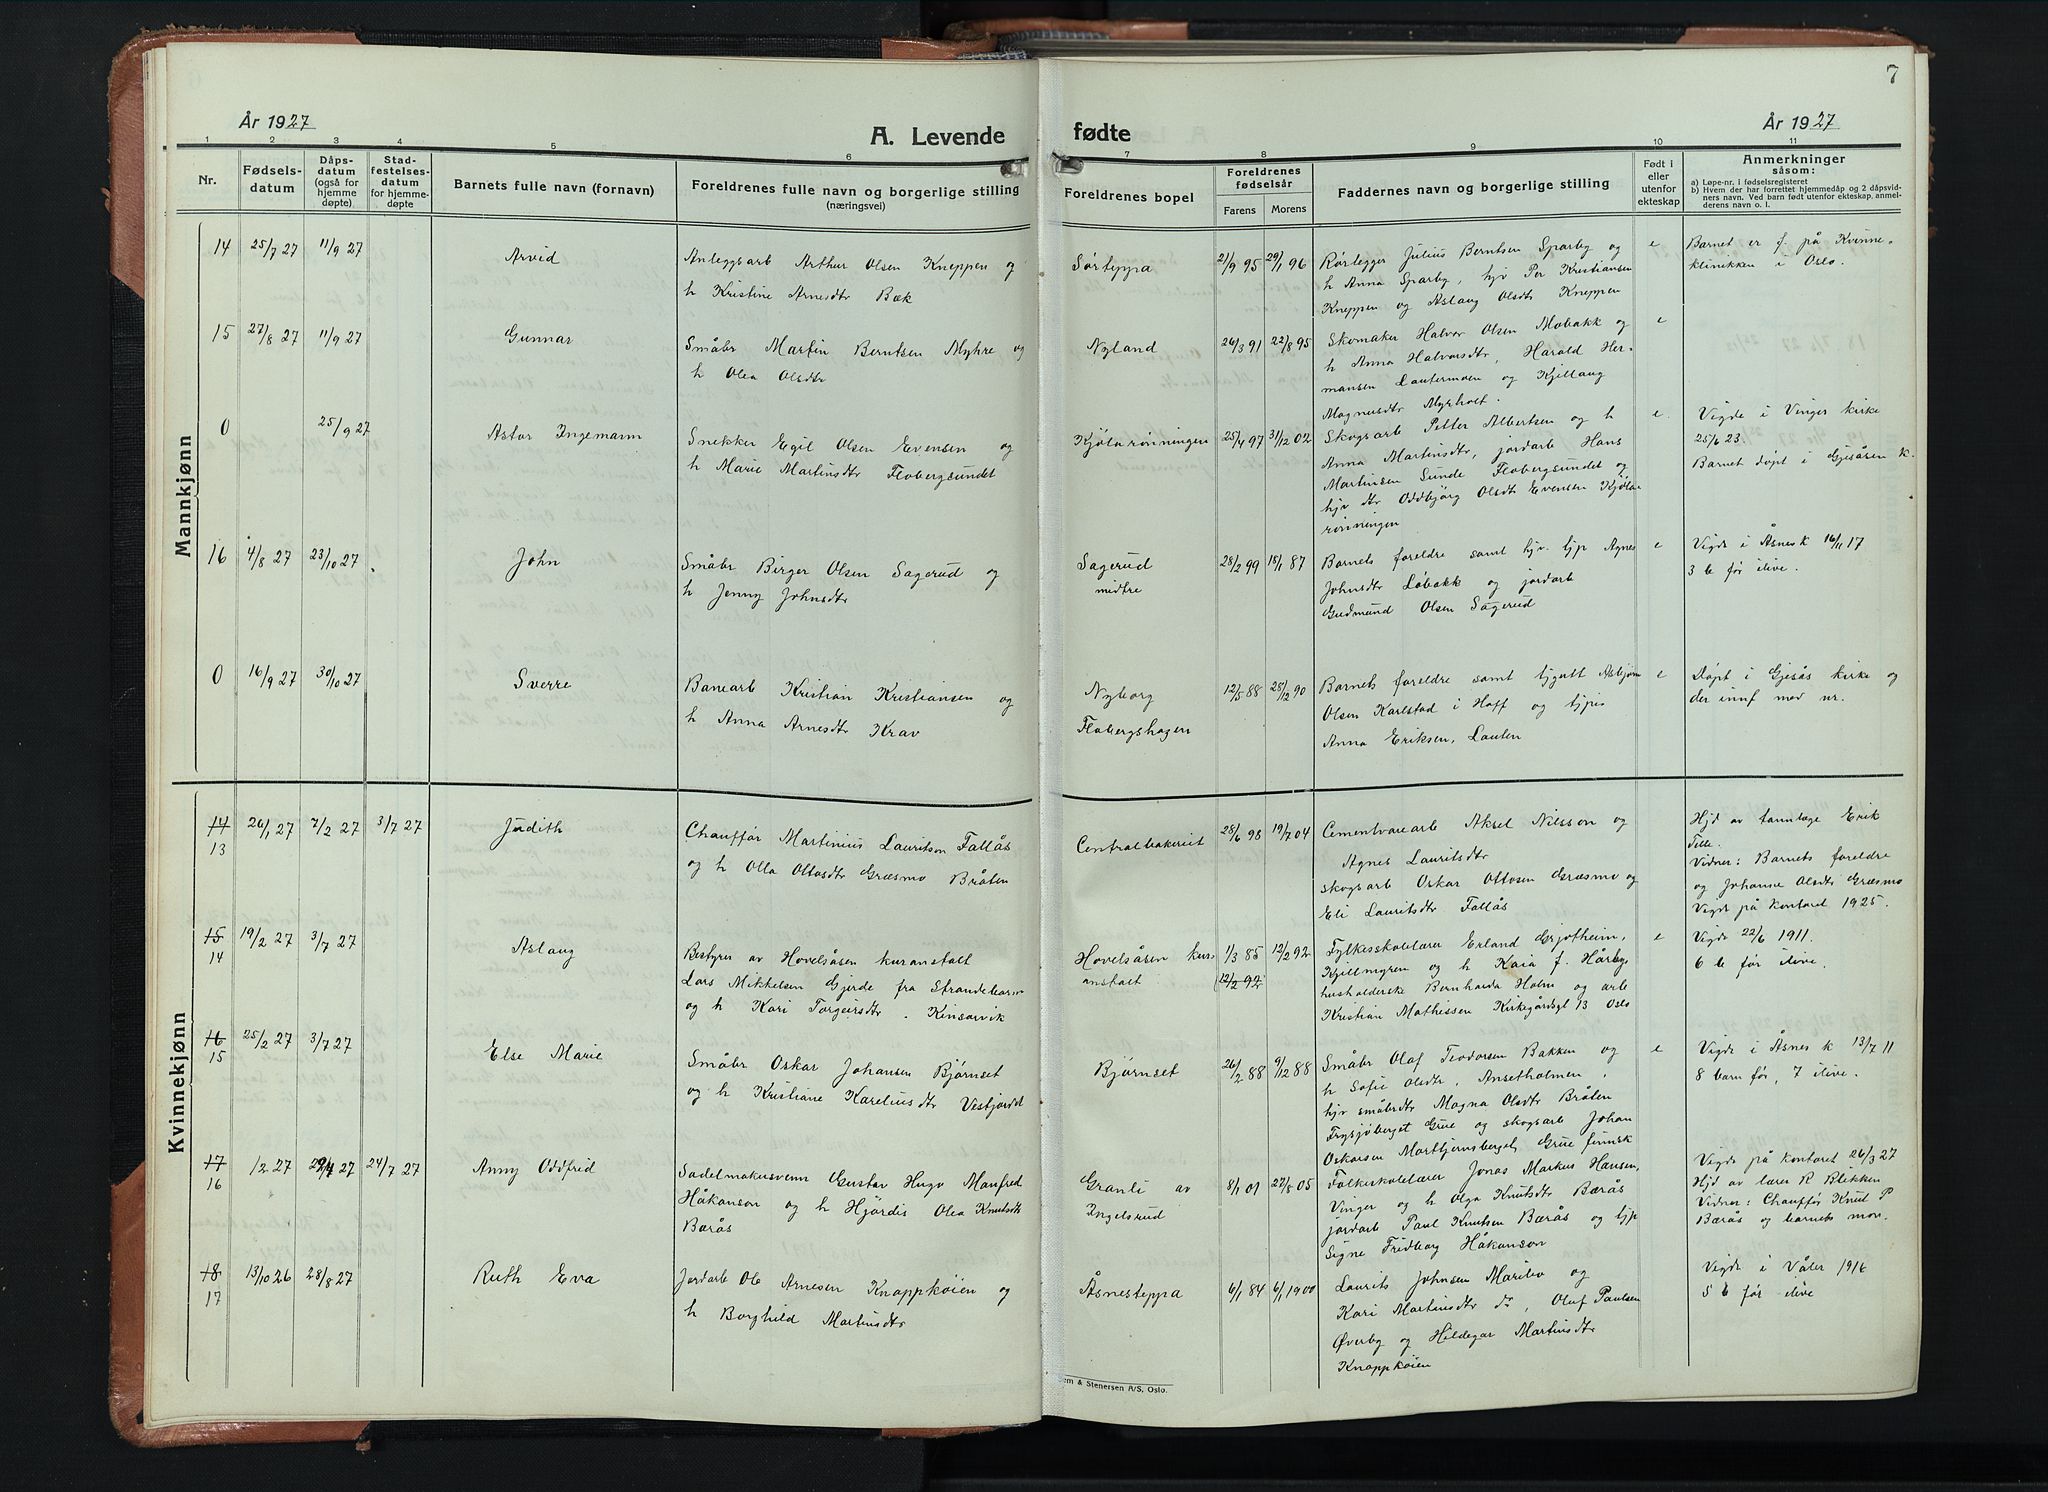 7
År 1927
A. Levende fødte
År 1927
1 2 3 4 5 6 7 8 9 10 11
Nr.
Fødsels-
datum
Dåps-
datum
(også for
hjemme
døpte)
Stad-
festelses-
datum
for hjemme-
døpte
Barnets fulle navn (fornavn)
Foreldrenes fulle navn og borgerlige stilling
(næringsvei)
Foreldrenes bopel
Foreldrenes
fødselsår
Farens Morens
Faddernes navn og borgerlige stilling
Født i
eller
utenfor
ekteskap
Anmerkninger
såsom:
a) Løpe-nr. i fødselsregisteret
b) Hvem der har forrettet hjemmedåp og 2 dåpsvid-
ners navn. Ved barn født utenfor ekteskap, anmel-
derens navn o. l.
Mannkjønn
14 25/7 27 11/9 27 Arvid
Anleggsarb Arthur Olsen Kneppen og
h Kristine Arnesdtr Bæk
Sørteppa
21/9 95 29/1 96
Rørlegger Julius Berntsen Sparby og
h Anna Sparby, hjv Per Kristiansen
Kneppen og Aslaug Olsdtr Kneppen
e
Barnet er f. på Kvinne-
klinikken i Oslo.
15 27/8 27 11/9 27 Gunnar
Småbr Martin Berntsen Myhre og
h Olea Olsdtr
Nyland
26/3 91 22/8 95
Skomaker Halvor Olsen Mobakk og
h Anna Halvorsdtr, Harald Her-
mansen Lautermoen og Kjellaug
Magnusdtr Myrholt.
e
0 25/9 27 Astor Ingemann
Snekker Egil Olsen Evensen og
h Marie Martinsdtr Flobergsundet
Kjølarønningen
25/4 97 31/12 02
Skogsarb Petter Albertsen og h
Anna Martinsdtr, jordarb Hans
Martinsen Sunde Flobergsundet og
hjv dtr Oddbjørg Olsdtr Evensen Kjøla-
rønningen
e.
Vigde i Vinger kirke
25/6 23.
Barnet døpt i Gjesåsen k.
16 4/8 27 23/10 27 John
Småbr Birger Olsen Sagerud og
h Jenny Johnsdtr
Sagerud
midtre
28/2 99 18/1 87
Barnets foreldre samt hjv. tjp Agnes
Johnsdtr Løbakk og jordarb
Gudmund Olsen Sagerud
e
Vigde i Åsnes k 16/11 17
3 b før ilive.
0 16/9 27 30/10 27 Sverre
Banearb Kristian Kristiansen og
h Anna Arnesdtr Krav
Nyborg
Flobergshagen
12/5 88 25/12 90
Barnets foreldre samt tjgutt Asbjørn
Olsen Karlstad i Hoff og tjpis
Anna Eriksen, Lauten
e
Døpt i Gjesås kirke og
der innf med nr.
Kvinnekjønn
14
13
26/1 27 7/2 27 3/7 27 Judith
Chauffør Martinius Lauritson Fallås
og h Olla Ottosdtr Græsmo Bråten
Centralbakeriet
28/6 98 19/7 04
Cementvarearb Aksel Nilsson og
Agnes Lauritsdtr
skogsarb Oskar Ottosen Græsmo og
Eli Lauritsdtr Fallås
Hjd av tannlæge Erik
Telle.
Vidner: Barnets foreldre
og Johanne Olsdtr Græsmo
Vigde på kontoret 1925.
15
14
19/2 27 3/7 27 Aslaug
Bestyrer av Hovelsåsen kuranstalt
Lars Mikkelsen Gjerde fra Strandebarm
og h Kari Torgeirsdtr. Kinsarvik
Hovelsåsen kur-
anstalt
1/3 85 12/2 92
(12/2 92)
Fylkesskolelærer Erland Grjotheim,
Kjellmyren og h Kaia f. Harby,
husholderske Bernharda Holm og arb
Kristian Mathissen Kirkegårdsgt 13 Oslo
e
Vigde 22/6 1911.
6 b før ilive.
16
15
25/2 27 3/7 27 Else Marie
Småbr Oskar Johansen Bjørnset
og h Kristiane Kareliusdtr Vestjordet
Bjørnset
26/2 88 9/12 88
Småbr Olaf Teodorsen Bakken og
h Sofie Olsdtr, Ansetholmen,
hjv småbrdtr Magna Olsdtr Bråten
Frysjøberget Grue og skogsarb Johan
Oskarsen Morttjernsberget, Grue finnsk
e
Vigde i Åsnes k 13/7 11
8 barn før, 7 ilive.
17
16
1/2 27 29/4 27 24/7 27 Anny Oddfrid
Sadelmakersvenn Gustav Hugo Manfred
Håkanson og h Hjørdis Olea Knutsdtr
Bærås
Granli av
Ingelsrud
8/1 01 22/8 05
Folkeskolelærer Jonas Markus Hansen,
Vinger og h Olga Knutsdtr Bærås
jordarb Paul Knutsen Bærås og tjp
Signe Fridborg Håkanson
Vigde på kontoret 26/3 27
Hjd av lærer R Blikken
Vidner: Chauffør Knut P
Bærås og barnets mor.
18
17
13/10 26 28/8 27 Ruth Eva
Jordarb Ole Arnesen Knappkøien og
h Borghild Martinsdtr
Åsnesteppa
6/1 84 6/1 1900
Laurits Johnsen Maribo og
Kari Martinsdtr ds, Olaf Paulsen
Øverby og Hildegar Martinsdtr
Knappkøien
Vigde i Våler 1916
5 b før ilive
em & Stenersen A/S, Oslo.